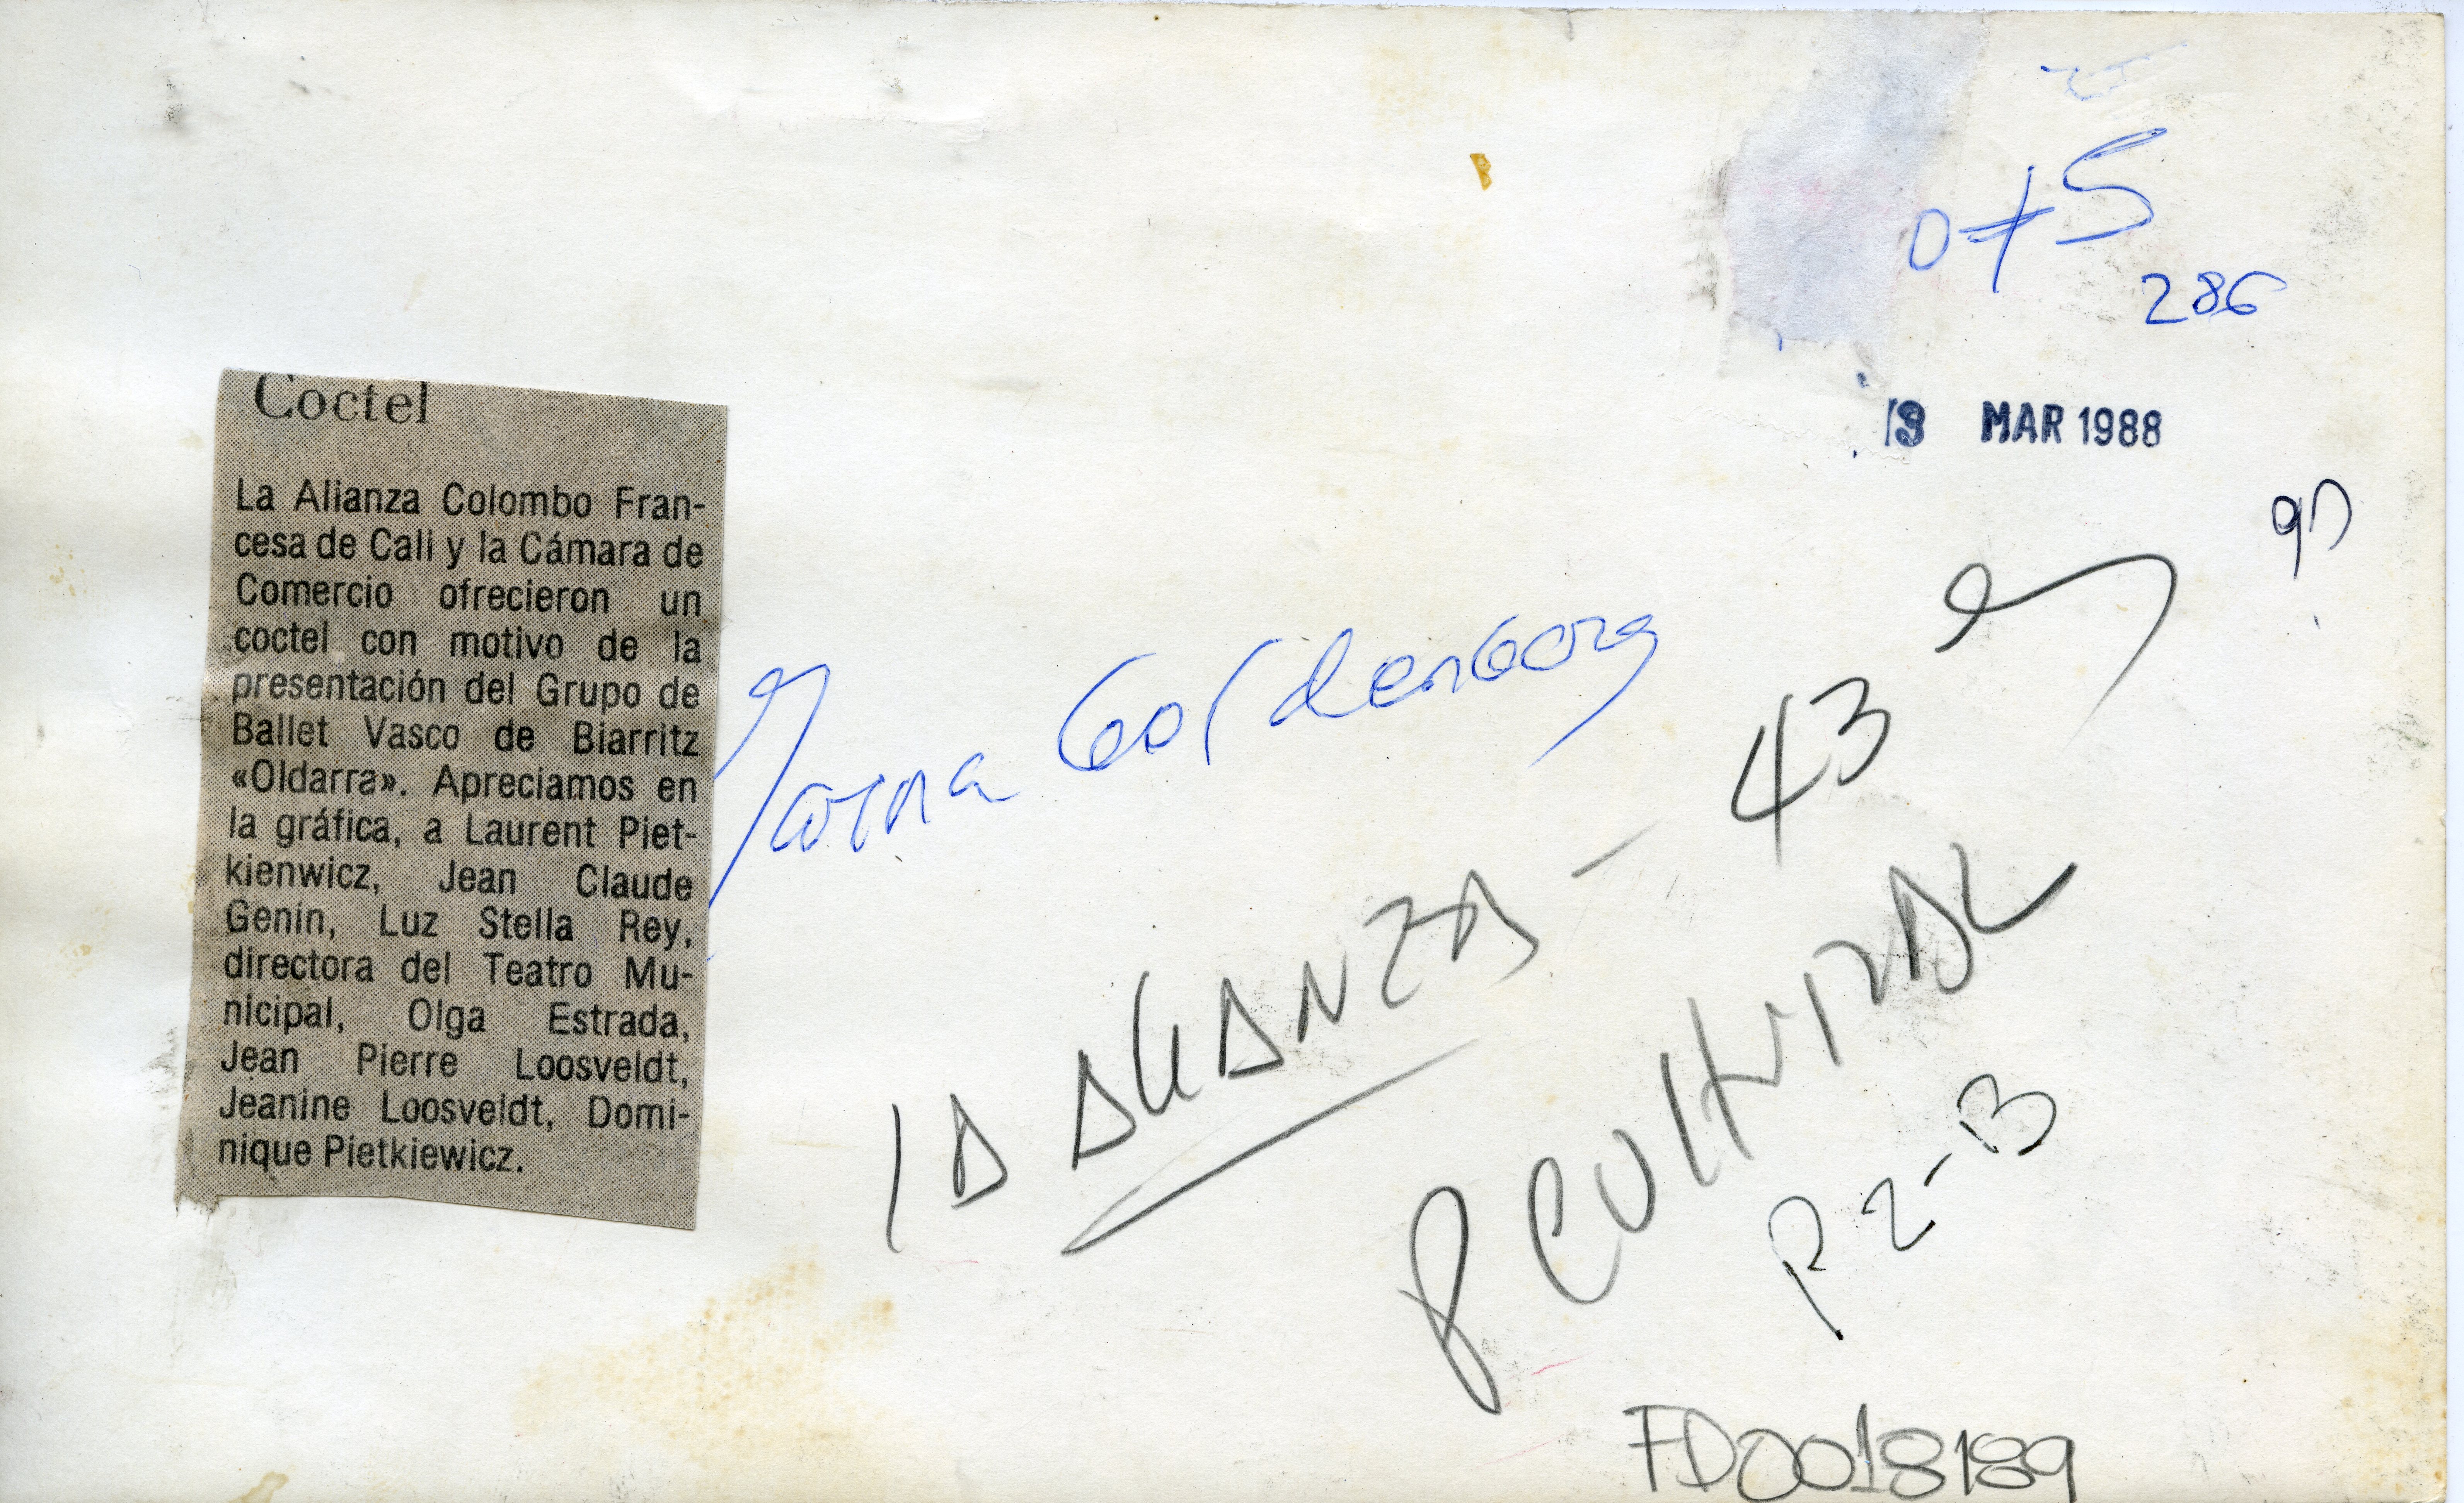 Coctel
La Alianza Colombo Fran-
cesa de Cali y la Cámara de
Comercio ofrecieron un
coctel con motivo de la
presentación del Grupo de
Ballet Vasco de Biarritz
«Oldarra». Apreciamos en
la gráfica, a Laurent Piet-
kienwicz, Jean Claude
Genin, Luz Stella Rey,
directora del Teatro Mu-
nicipal, Olga Estrada,
Jean Pierre Loosveldt,
Jeanine Loosveldt, Domi-
nique Pietkiewicz.
286
MAR 1988
LA ALIANZA - 43
P CULTURAL
P2-B
FD0018189